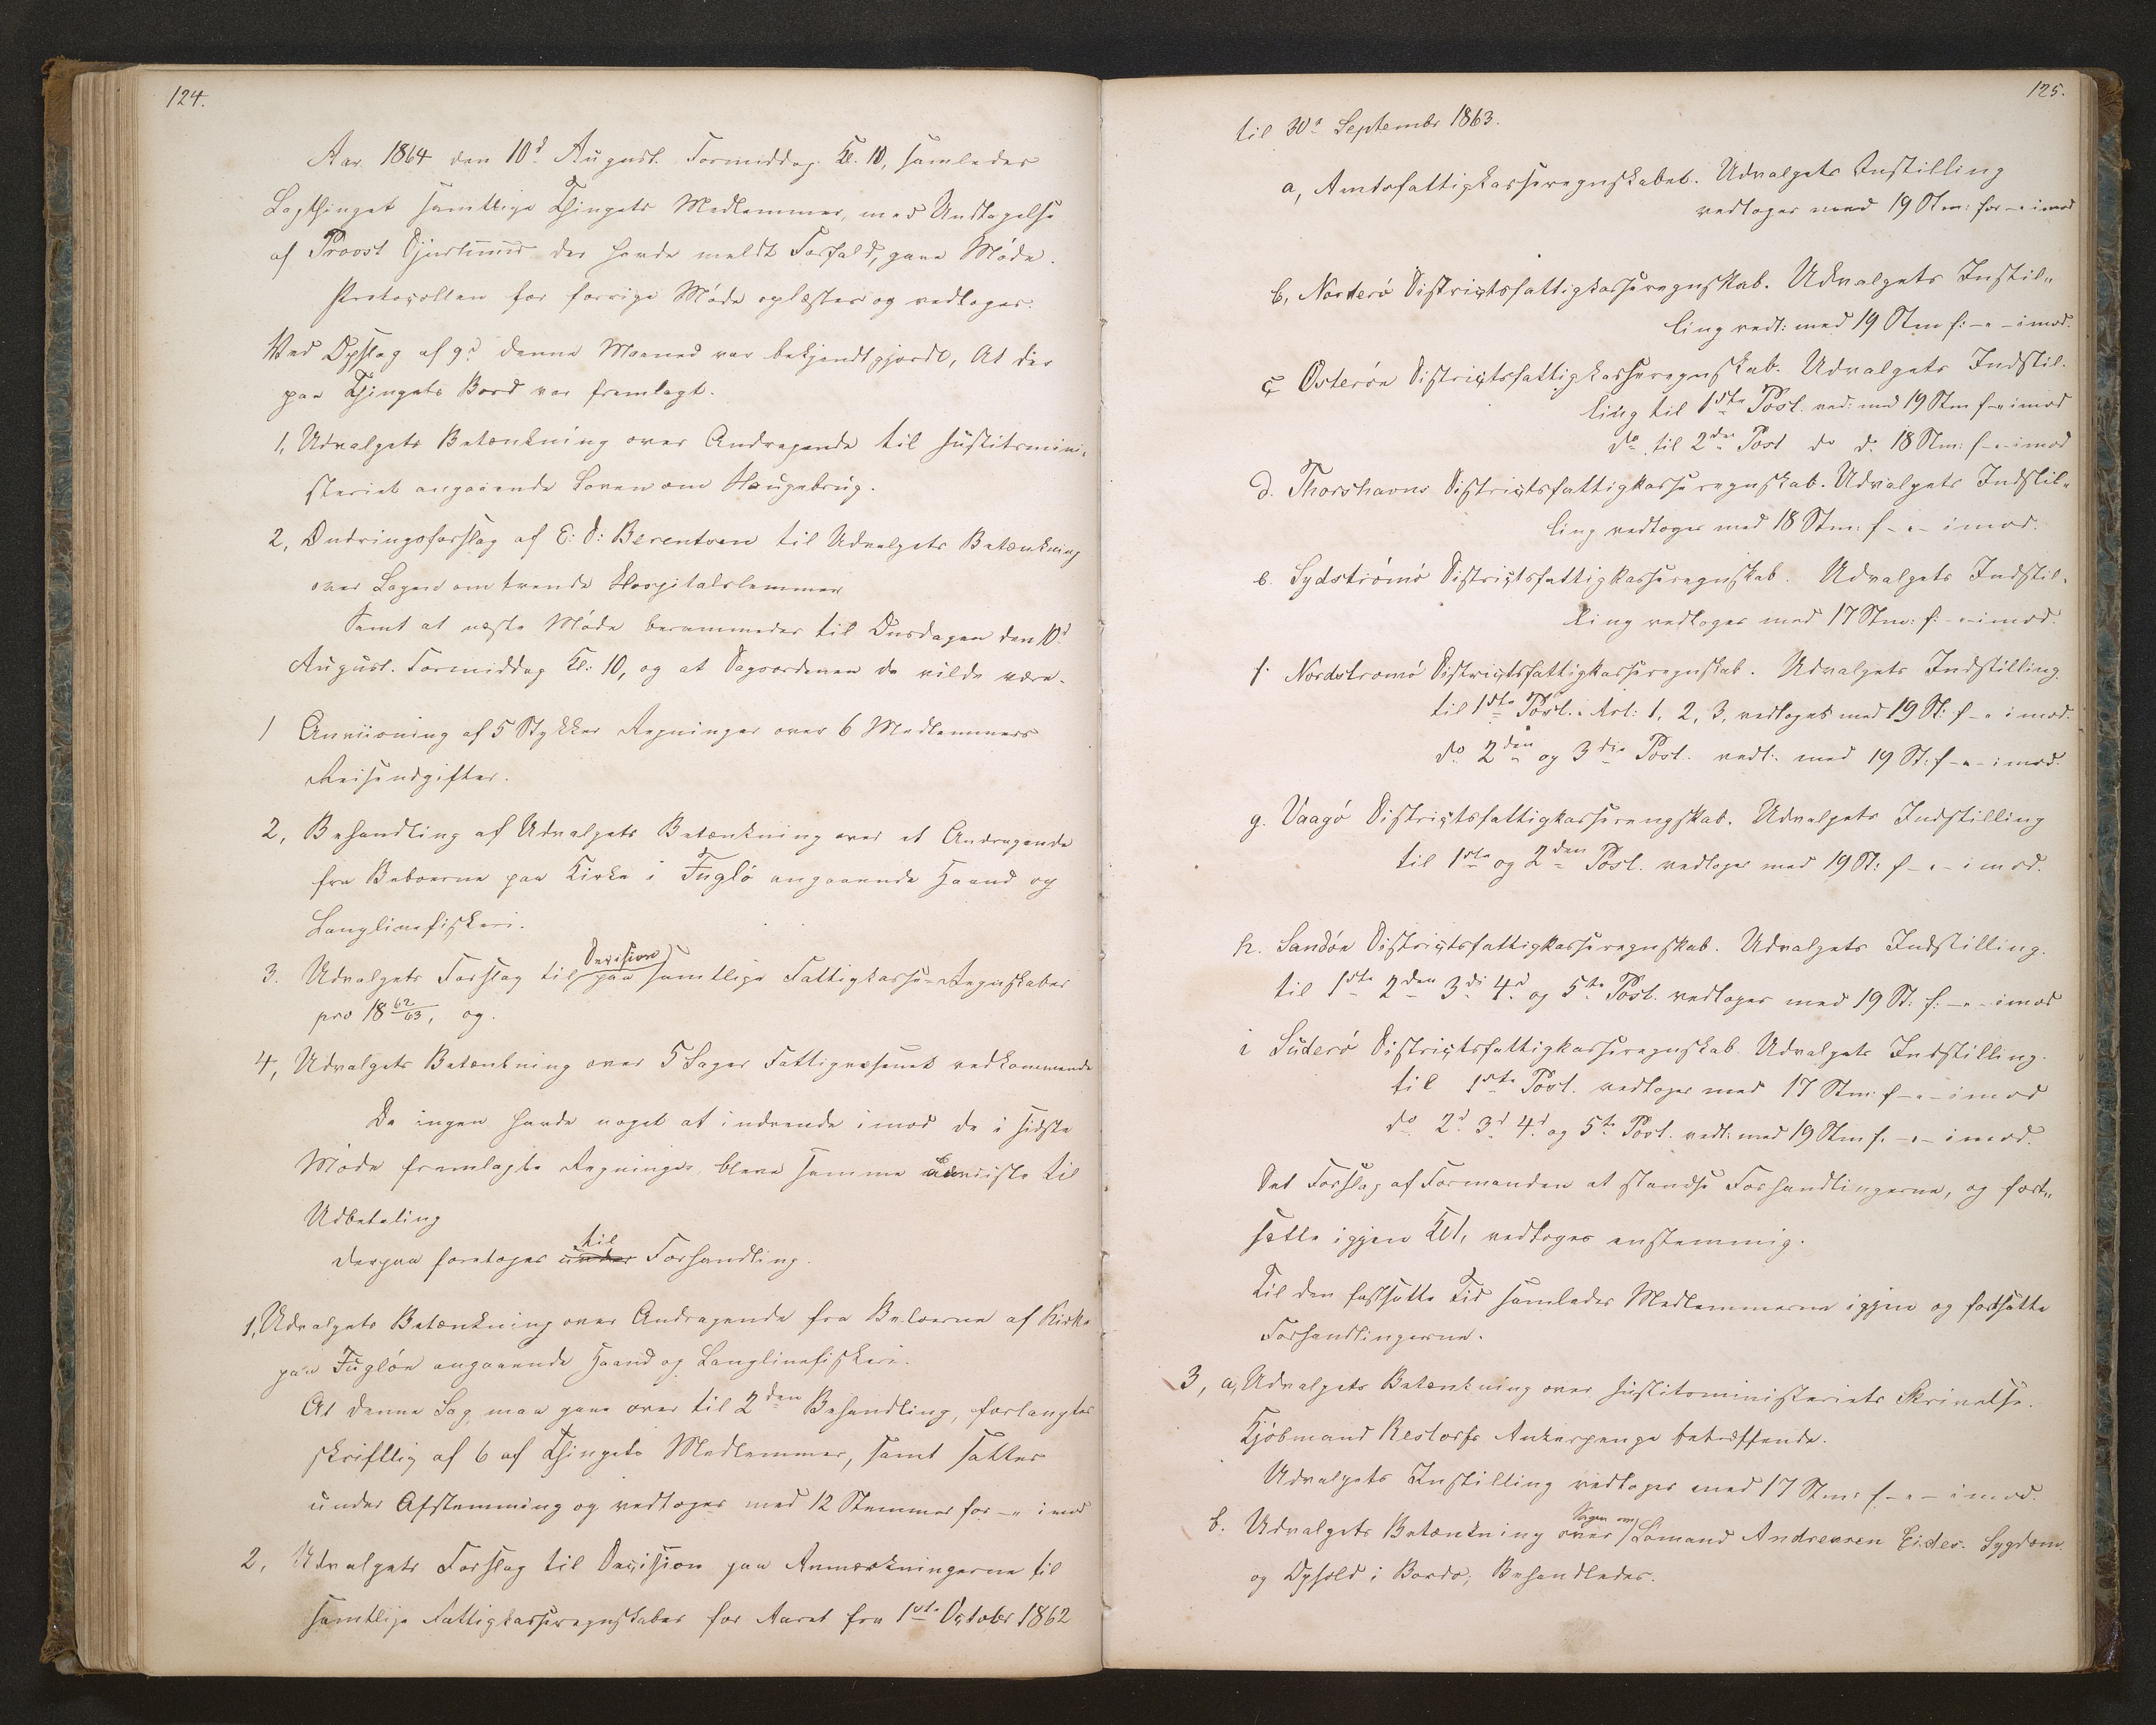 124.
Aar 1864 den 10d August Formiddag Kl. 10, samledes
Lagthinget samtlige Thingets Medlemmer, med Undtagelse
af Provst Djurhuus der havde meldt Forfald, gave Møde.
Protocollen for forrige Møde oplæstes og vedtoges.
Ved Opslag af 9d denne Maaned var bekjendtgjordt, At der
paa Thingets Bord var fremlagt.
1, Udvalgets Betænkning over Andragende til Justitsmini-
steriet angaaende Loven om Haugebrug.
2, Ændringsforslag af E: D: Berentsen til Udvalgets Betænkning
over Sagen om trende Hospitalslemmer
Samt at næste Møde berammedes til Onsdagen den 10d
August. Formiddag Kl: 10, og at Dagsordenen da vilde være.
1 Anviisning af 5 Stykker Regninger over 6 Medlemmers
Reiseudgifter.
2, Behandling af Udvalgets Betænkning over et Andragende
fra Beboerne paa Kirke i Fuglø angaaende Haand og
Langlinefiskeri.
3. Udvalgets Forslag til Decision paa samtlige Fattigkasse-Regnskaber
pro 18 62/63, og.
4, Udvalgets Betænkning over 5 Sager Fattigvæsenet vedkommende
Da ingen havde noget at indvende imod de i sidste
Møde fremlagte Regninger, bleve samme anviiste til
Udbetaling
Derpaa foretoges under til Forhandling.
1, Udvalgets Betænkning over Andragende fra Beboerne af Kirke
paa Fugløe angaaende Haand og Langlinefiskeri.
At denne Sag maa gaae over til 2den Behandling, forlangtes
skriftlig af 6 af Thingets Medlemmer, samt sattes
under Afstemming og vedtoges med 12 Stemmer for -" imod
2, Udvalgets Forslag til Decission paa Anmærkningerne til
samtlige Fattigkasseregnskaber for Aaret fra 1ste October 1862
125.
til 30d Septembr 1863.
a, Amtsfattigkasseregnskabet. Udvalgets Instilling
vedtoges med 19 Stm: for -" imod
b, Norderø Districtsfattigkasseregnskab. Udvalgets Instil"
ling vedt: med 19 Stm f: -" - imod.
c Østerøe Districtsfattigkasseregnskab. Udvalgets Indstil-
ling til 1ste Post. ved: med 19 Stm f -" imod
do til 2den Post do d. 18 Stm: f -" - imod
d. Thorshavns Districtsfattigkasseregnskab. Udvalgets Indstil-
ling vedtoges med 18 Stm: f -" - imod.
e. Sydstrømø Districtsfattigkasseregnskab. Udvalgets Indstil-
ling vedtoges med 17 Stm: f: -" imod.
f. Nordstromø Districtsfattigkasseregnskab. Udvalgets Indstilling
til 1ste Post. Art: 1, 2, 3, vedtoges med 19 St: f -" imod.
do 2den og 3die Post. vedt. med 19 St: f -" - imod.
g. Vaagø Districtsfattigkasserengskab. Udvalgets Indstilling
til 1ste og 2den Post. vedtoges med 19 St: f -" - imod.
h. Sandøe Districtsfattigkasseregnskab. Udvalgets Indstilling.
til 1ste 2den 3di 4d og 5te Post. vedtoges med 19 St: f: -" - imod
i Suderø Districtsfattigkasseregnskab. Udvalgets Indstilling.
til 1ste Post. vedtoges med 17 Stm: f -" - imod
do 2d 3d 4d og 5te Post. vedt: med 19 Stm f. -" - imod.
Det Forslag af Formanden at standse Forhandlingerne, og fort"
sætte igjen Kl 1, vedtoges enstemmig.
Til den fastsatte Tid samledes Medlemmerne igjen og fortsatte
Forhandlingerne.
3, a, Udvalgets Betænkning over Justitsministeriets Skrivelse.
Kjøbmand Restorfs Ankerpenge betræffende.
Udvalgets Instilling vedtoges med 17 Stm: f -" - imod.
b. Udvalgets Betænkning over Sagen om Sømand Andreasen Eides. Sygdom
og Ophold i Bordø; Behandledes.